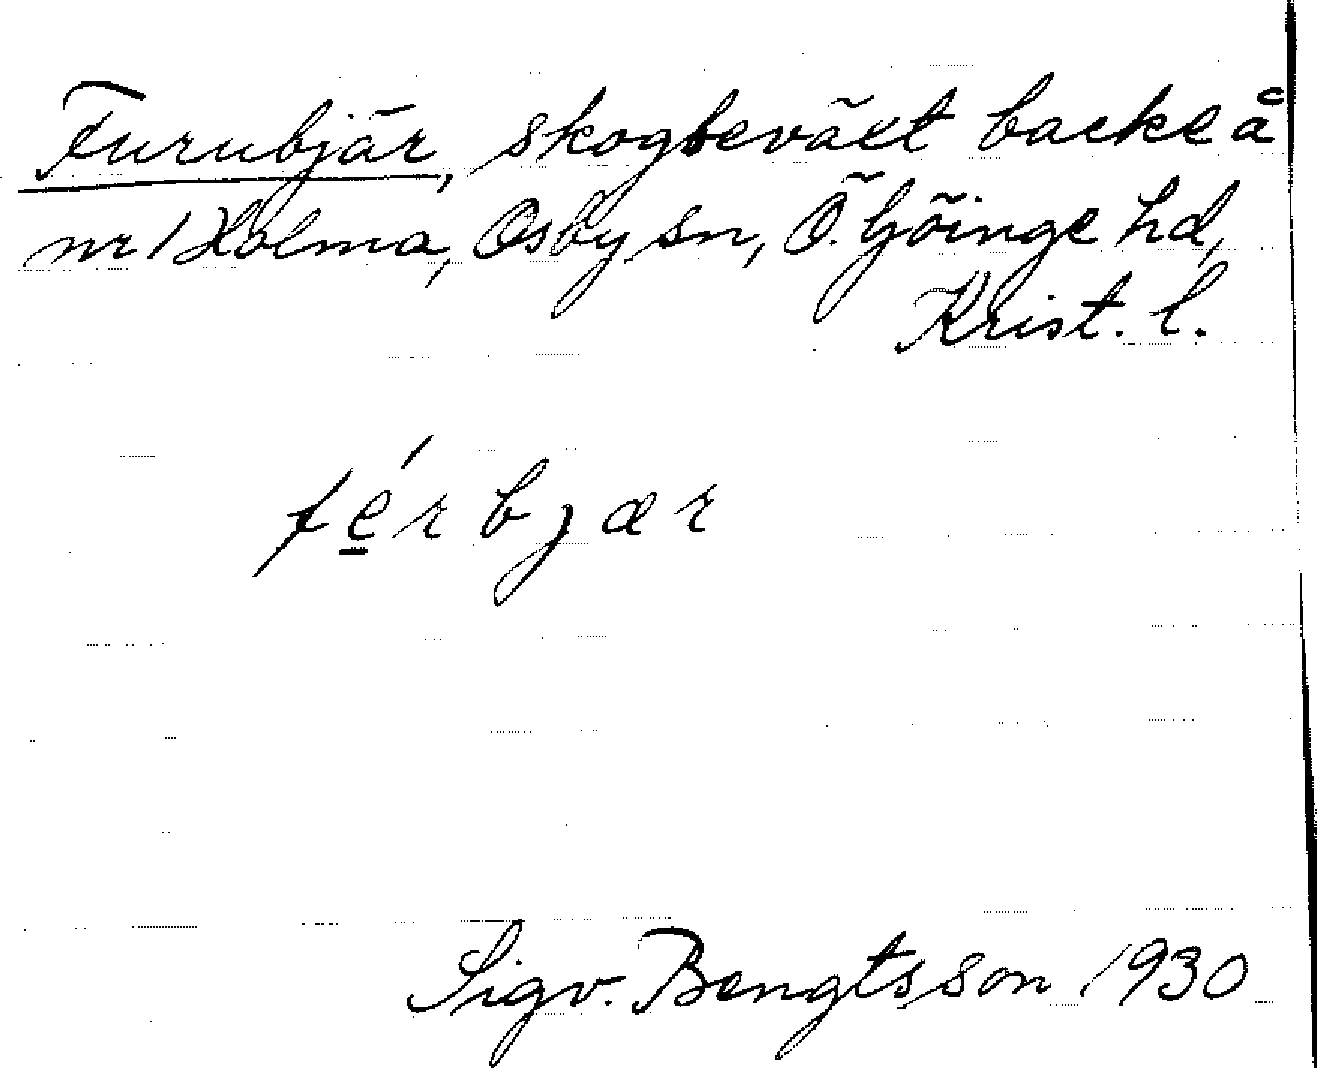 Furubjär, skogbeväxt backe å
nr 1 Holma, Osby sn, Ö. Göinge hd,
Krist. l.
fé̲rbjær
Sigv. Bengtsson 1930